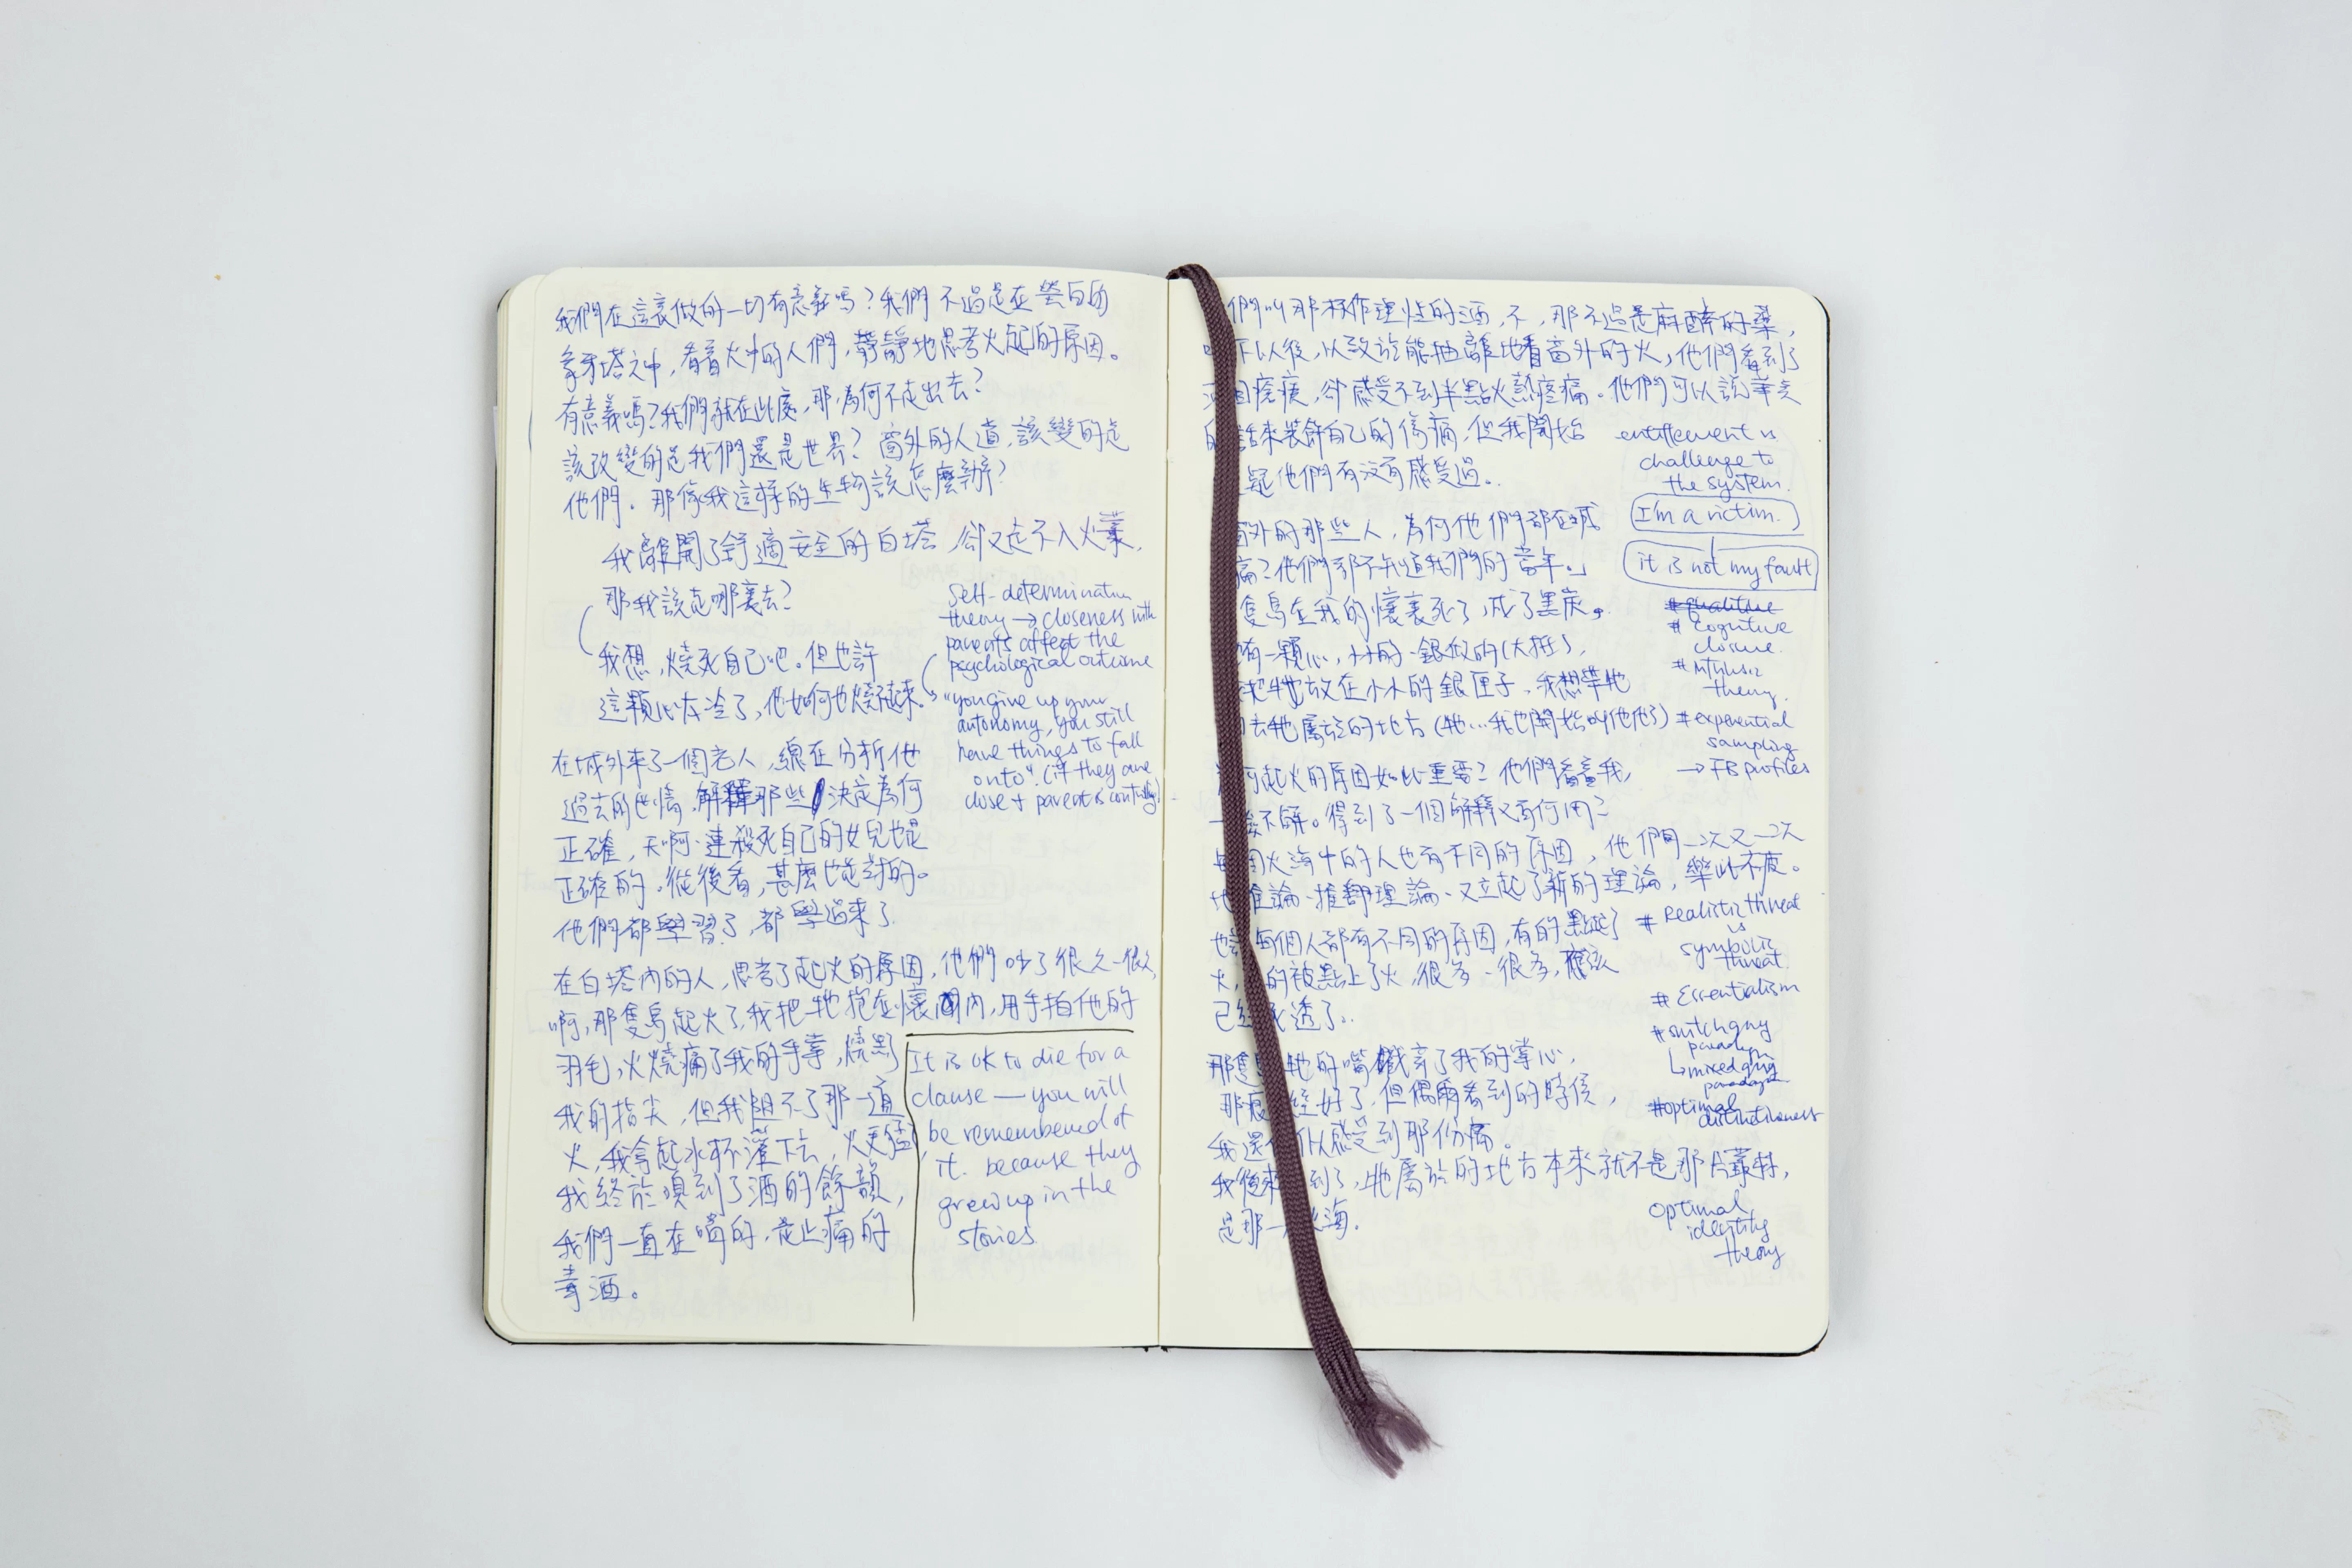 我們在這裏做的一切有意義嗎？我們不過是在瑩白的
象牙塔之中，看着火中的人們，靜靜地思考火起的原因。
有意義嗎？我們就在此處，那為何不走出去？
該改變的是我們還是世界？窗外的人道，該變的是
他們。那像我這樣的生物該怎麼辦？
我離開了舒適安全的白塔，卻又走不入火叢，
那我該走哪裏去？
我想，燒死自己吧。但也許
這顆心太冷了，他如何也燒不起來。
Self-determination
theory → closeness with
parents affect the
psychological outcome
"you give up your
autonomy, you still
have things to fall
onto". (if they are
close + parent is
在城外來了一個老人，總在分析他
過去的事情，解釋那些決定為何
正確，天啊，連殺死自己的女兒也是
正確的。從後看，甚麼也是對的。
他們都學習了，都學過來了
在白塔內的人，思考了起火的原因，他們吵了很久很久，
啊，那隻鳥起火了，我把牠抱在懷內，用手拍他的
羽毛，火燒痛了我的手掌，燒黑了
我的指尖，但我阻不了那一道
火，我拿起水杯灌下去，火更猛，
我終於嗅到了酒的餘韻，
我們一直在喝的，是止痛的
毒酒。
It is OK to die for a
clause — you will
be remembered of
it. because they
grew up in the
stories
們叫那杯作理性的酒，不，那不過是麻醉的藥，
下以後，以致於能抽離地看窗外的火，他們看到了
瘡痍，卻感受不到半點火熱疼痛。他們可以說華美
的話來裝飾自己的傷痛，但我開始
疑他們有沒有感受過。
entitlement is
challenge to
the system.
I'm a victim.
it is not my fault
窗外的那些人，為何他們都在喊
痛？他們都不知道我們的當年。」
隻鳥在我的懷裏死了，成了黑炭。
有一顆心，小小的，銀做的（大抵），
牠放在小小的銀匣子，我想帶牠
去牠屬於的地方（牠...我也開始叫他他了）
# Cognitive
closure
theory.
# experiential
sampling
→ FB profiles
為何起火的原因如此重要？他們看着我，
不解。得到了一個解釋又有何用？
每個火海中的人也有不同的原因，他們一次又一次
地推論、推翻理論、又立起了新的理論，樂此不疲。
也許每個人都有不同的原因，有的點起了
火，的被點上了火，很多，很多，應該
已經死透了。
# Realistic threat
vs
symbolic
threat.
# Essentialism
paradigm
↳ mixed
paradigm
#optimal
distinctiveness
那隻鳥牠的嘴戳穿了我的掌心，
那痕經好了，但偶爾看到的時候，
我還可以感受到那份痛。
我後來到了，牠屬於的地方本來就不是那片叢林，
是那一火海.
optimal
identity
theory